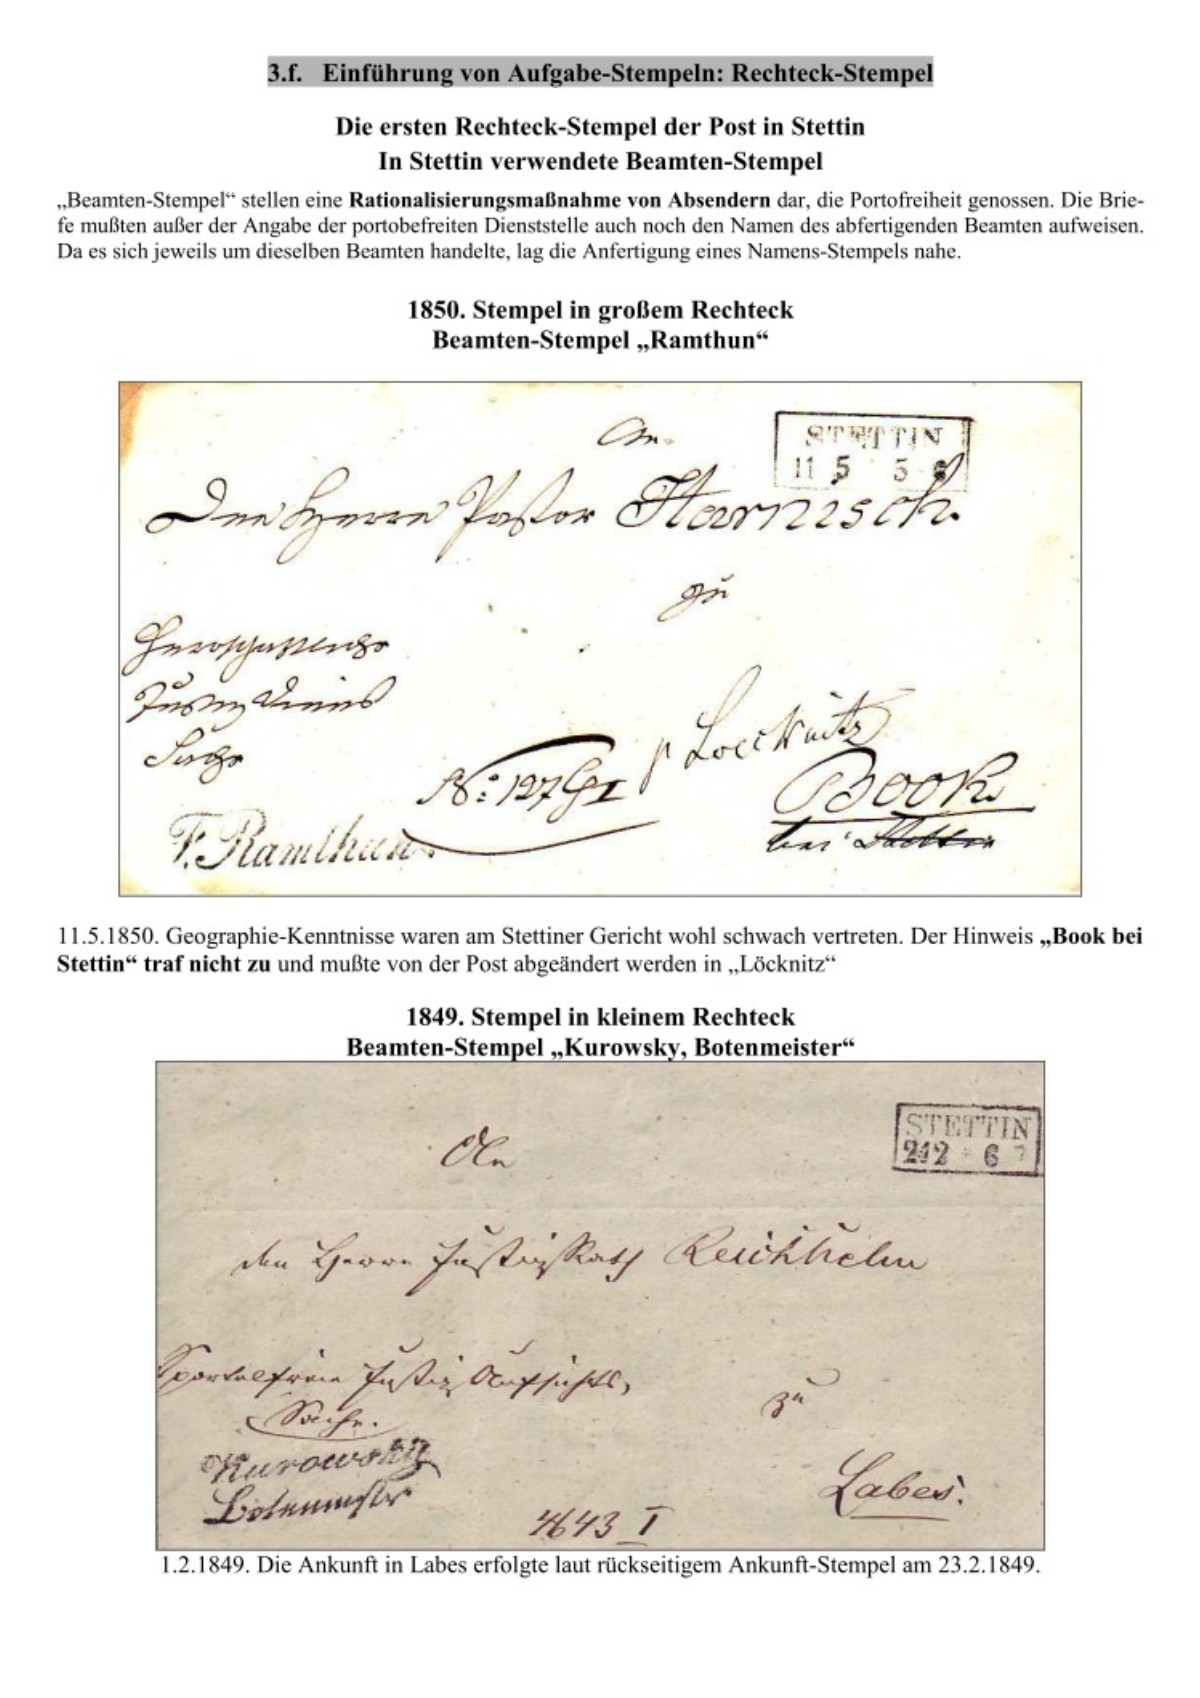 3.f. Einführung von Aufgabe-Stempeln: Rechteck-Stempel
Die ersten Rechteck-Stempel der Post in Stettin
In Stettin verwendete Beamten-Stempel
„Beamten-Stempel“ stellen eine Rationalisierungsmaßnahme von Absendern dar, die Portofreiheit genossen. Die Brie-
fe mußten außer der Angabe der portobefreiten Dienststelle auch noch den Namen des abfertigenden Beamten aufweisen.
Da es sich jeweils um dieselben Beamten handelte, lag die Anfertigung eines Namens-Stempels nahe.
1850. Stempel in großem Rechteck
Beamten-Stempel „Ramthun“
An
STETTIN
11 5 5
Den Herrn Pastor Harnisch.
zu
Sache
p Loecknitz
No: 127
Book
F. Ramthun.
bei Stettin
11.5.1850. Geographie-Kenntnisse waren am Stettiner Gericht wohl schwach vertreten. Der Hinweis „Book bei
Stettin“ traf nicht zu und mußte von der Post abgeändert werden in „Löcknitz“
1849. Stempel in kleinem Rechteck
Beamten-Stempel „Kurowsky, Botenmeister“
STETTIN
6
An
den Herrn Justiz Rath Reichhelm
Sportelfreie Justiz Aufsichts,
Sache.
zu
Kurowsky
Botenmeister
Labes.
4643 I
1.2.1849. Die Ankunft in Labes erfolgte laut rückseitigem Ankunft-Stempel am 23.2.1849.